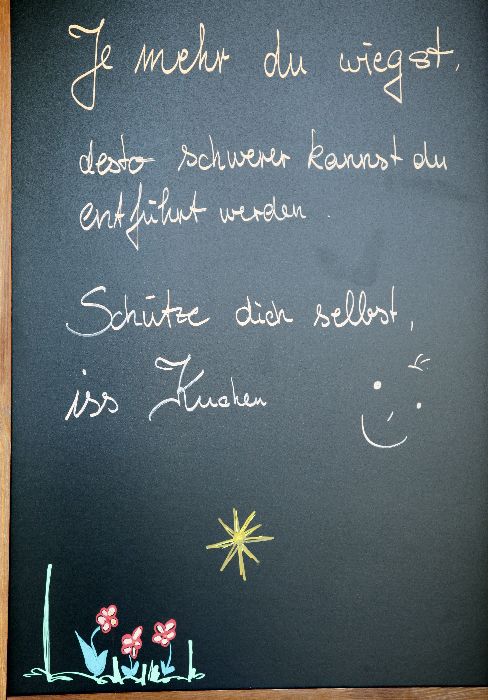 Je mehr du wiegst,
desto schwerer kannst du
entführt werden.
Schütze dich selbst,
iss Kuchen